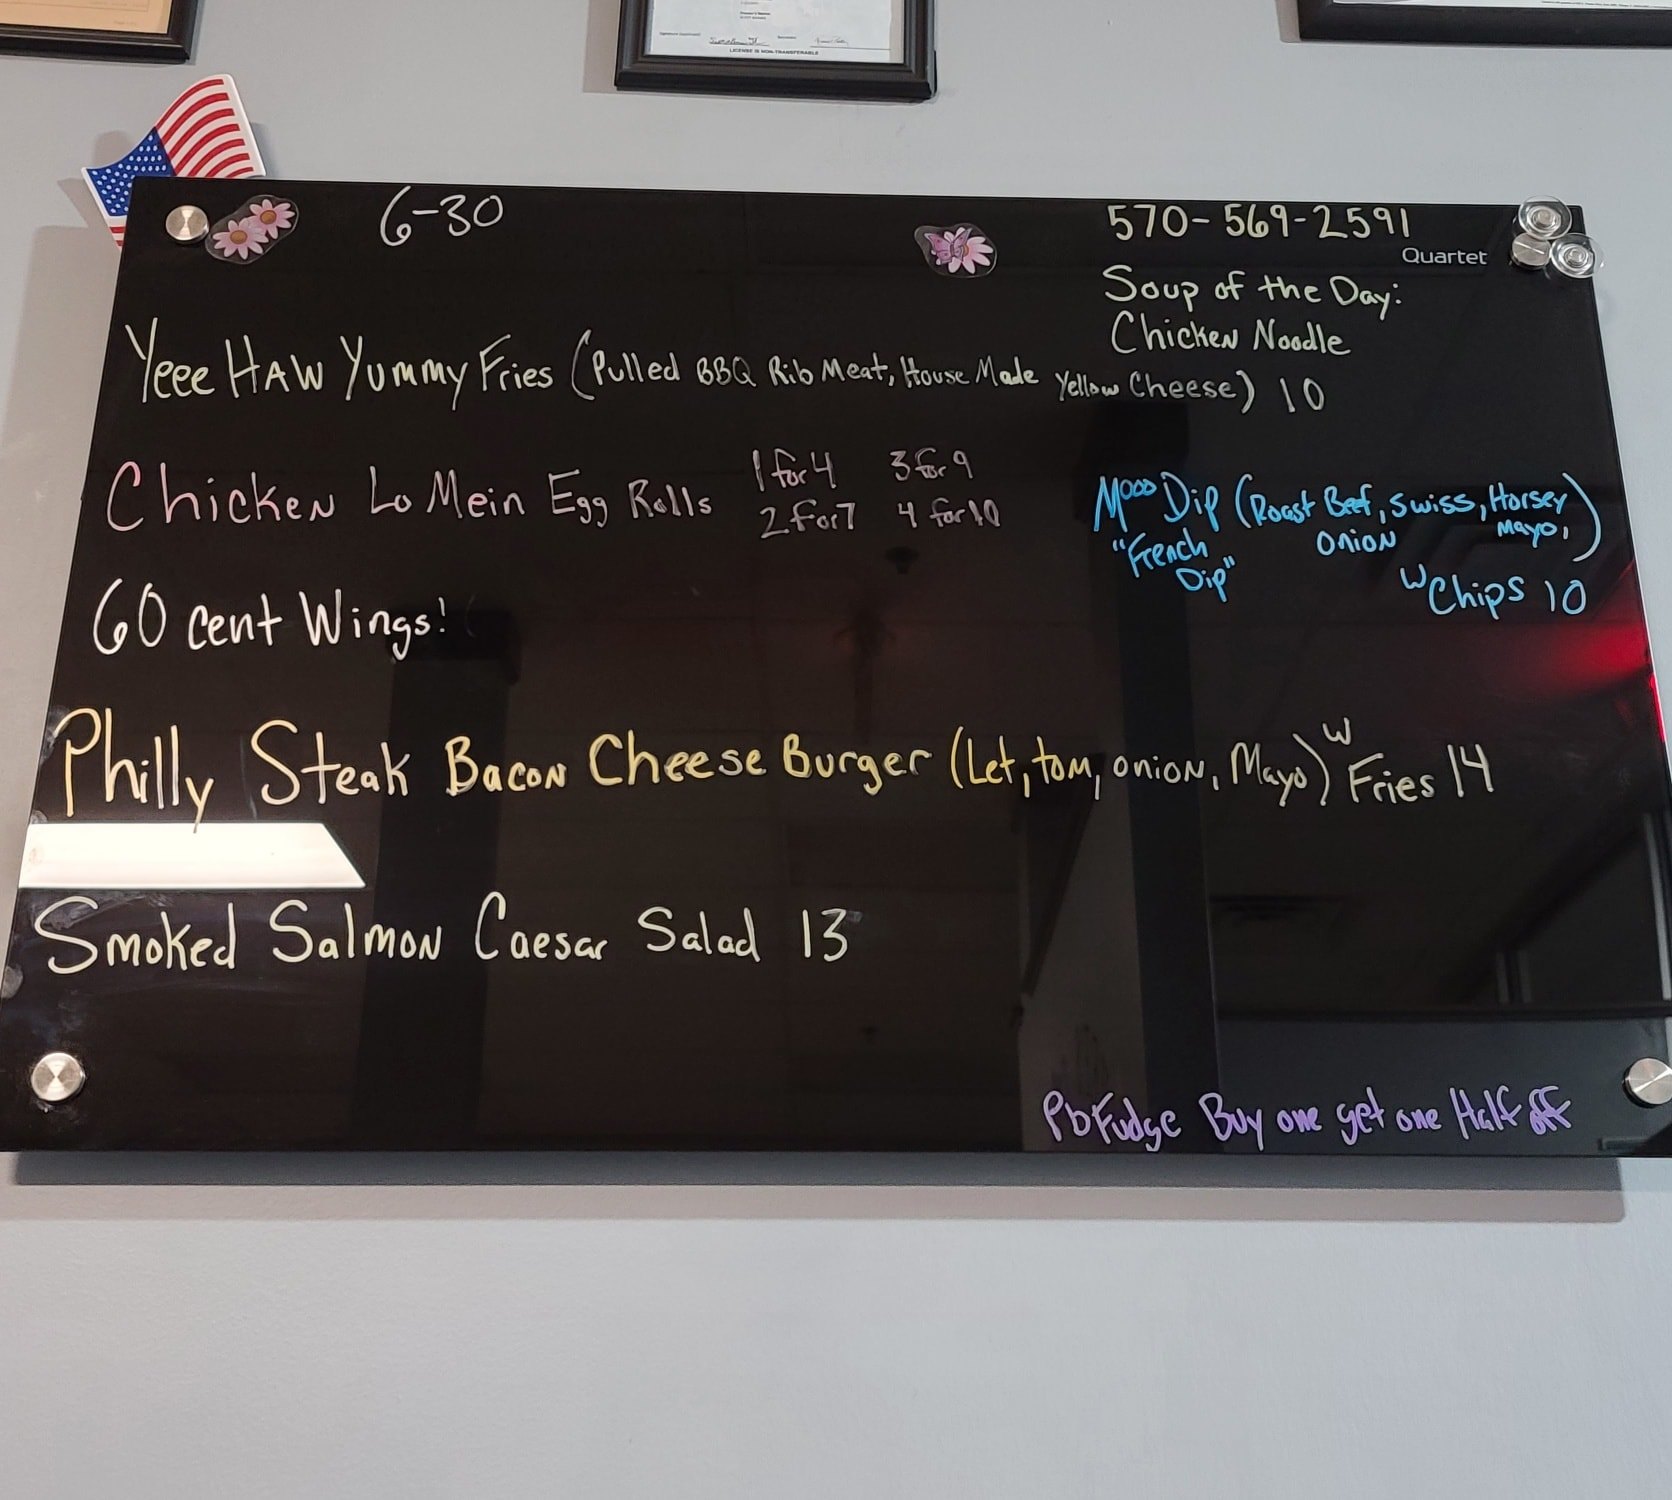 LICENSE IS NON-TRANSFERABLE
6-30
570-569-2591
Quartet
Soup of the Day:
Chicken Noodle
Yeee HAW Yummy Fries (Pulled BBQ Rib Meat, House Made Yellow Cheese) 10
Chicken Lo Mein Egg Rolls
1 for 4 3 for 9
2 for 7 4 for 10
Mooo Dip (Roast Beef, Swiss, Horsey
"French Onion Mayo,)
Dip"
w Chips 10
60 cent Wings!
Philly Steak Bacon Cheese Burger (Let, tom, onion, Mayo) w Fries 14
Smoked Salmon Caesar Salad 13
Pb Fudge Buy one get one Half off